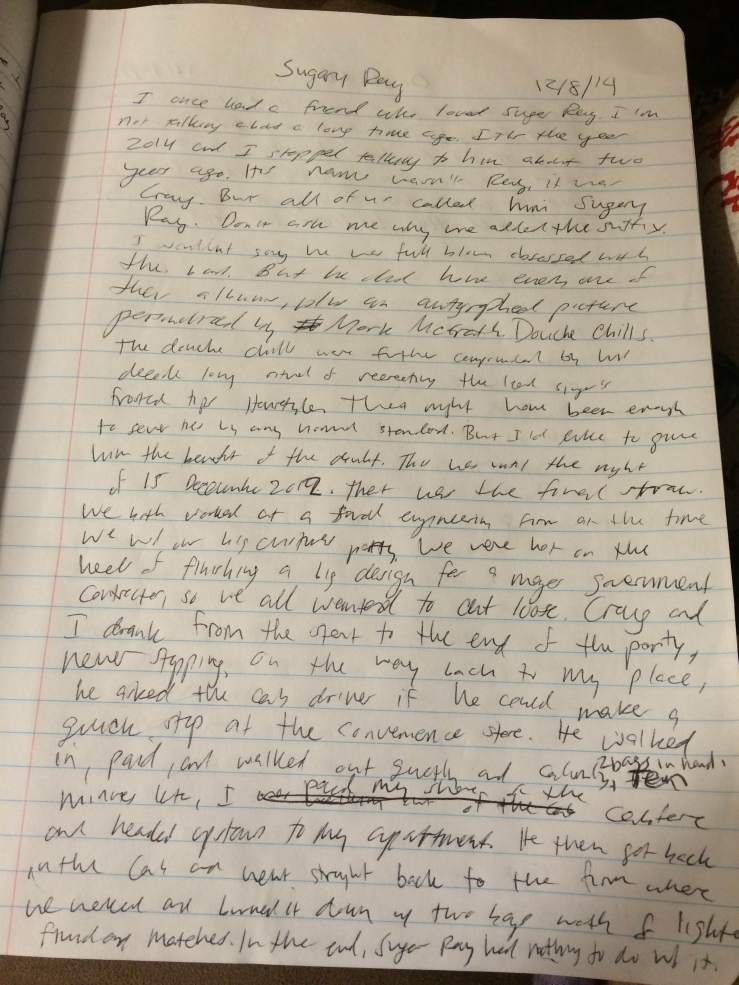 Sugary Ray 12/8/14
I once had a friend who loved Sugar Ray. I'm
not talking about a long time ago. It's the year
2014 and I stopped talking to him about two
years ago. His name wasn't Ray, it was
Craig. But all of us called him Sugary
Ray. Don't ask me why we added the suffix.
I wouldn't say he was full blown obsessed with
the band. But he did have every one of
their albums, plus an autographed picture
personalized by Mark McGrath. Douche Chills.
The douche chills were further compounded by his
decade long ritual of recreating the lead singer's
frosted tips Hairstyles. That might have been enough
to sever ties by any normal standard. But I'd like to give
him the benefit of the doubt. This was until the night
of 15 December 2012. That was the final straw.
We both worked at a small engineering firm at the time
We had our big christmas party. We were hot on the
heels of finishing a big design for a major government
Contractor, so we all wanted to cut loose. Craig and
I drank from the start to the end of the party,
never stopping. On the way back to my place,
he asked the cab driver if he could make a
quick stop at the convenience store. He walked
in, paid, and walked out quietly and calmly, 2 bags in hand. Ten
minutes later, I paid my share of the cabfare
and headed upstairs to my apartment. He then got back
in the cab and went straight back to the firm where
we worked and burned it down w/ two bags worth of lighter
fluid and matches. In the end, Sugar Ray had nothing to do w/ it.